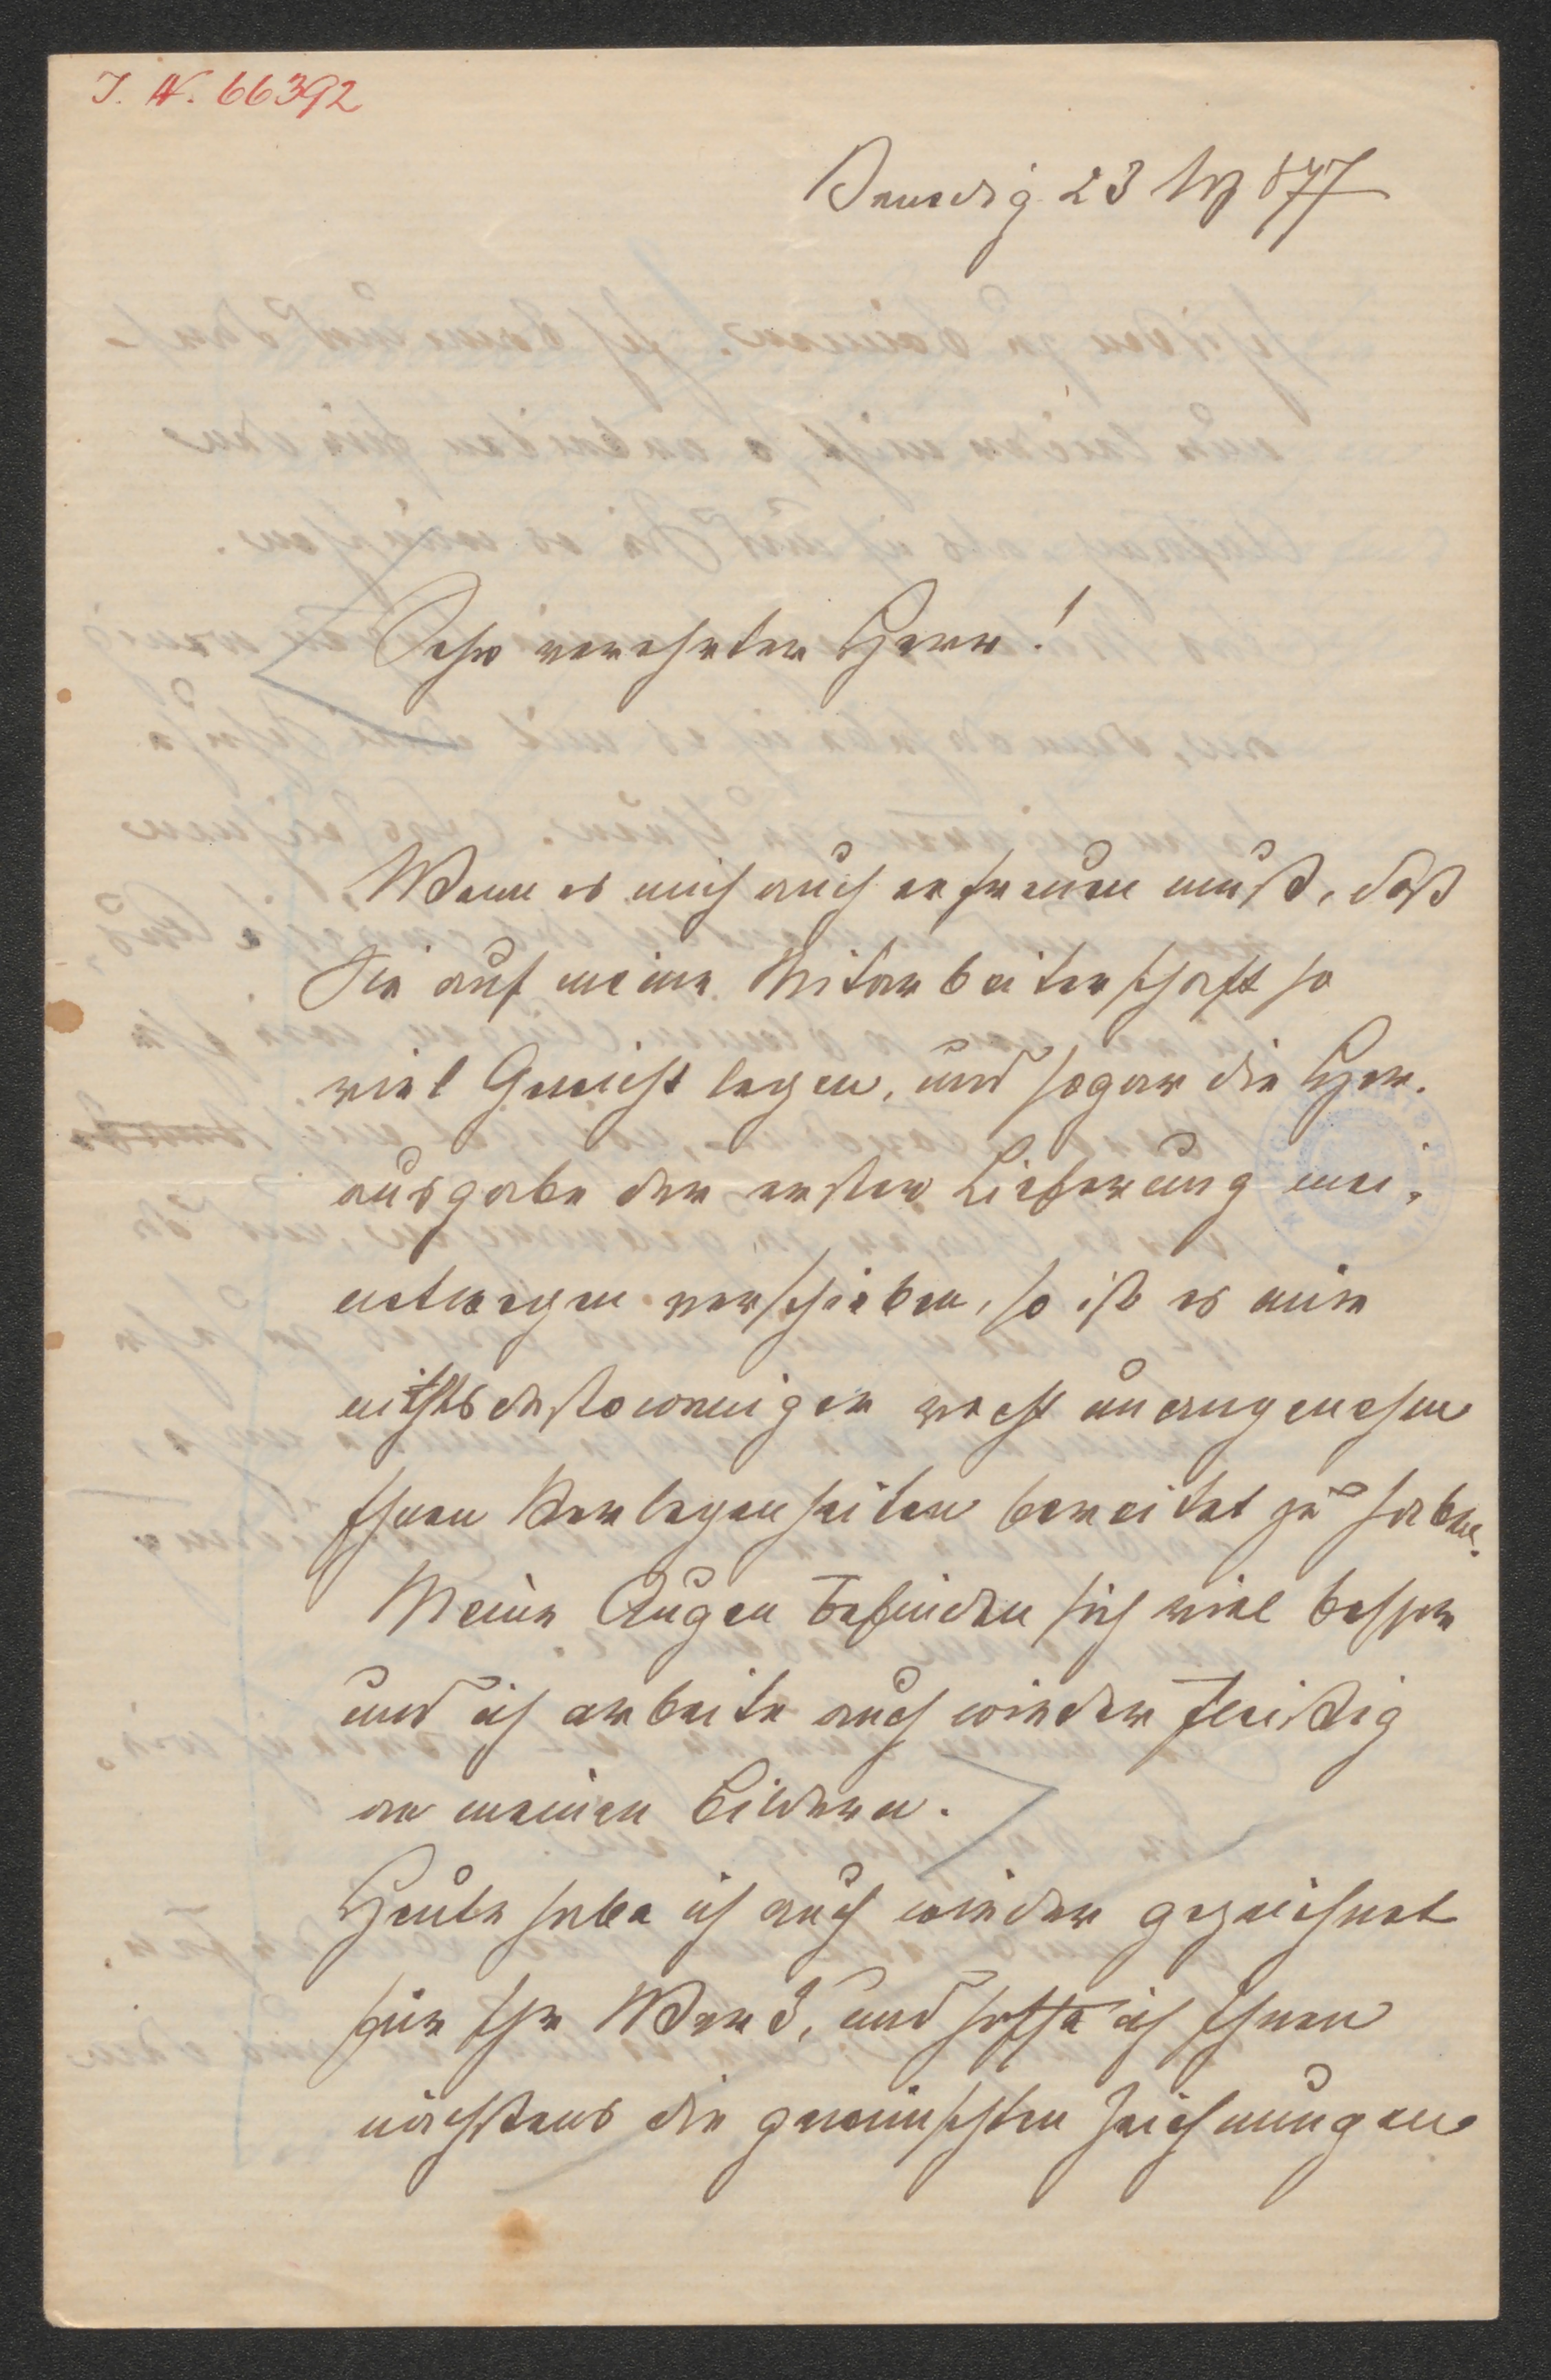 J. N. 66392
Venedig 23 877
Sehr verehrter Herr!
Wenn es mich auch erfreuen muß, daß
Sie auf meine Mitarbeiterschaft so
viel Gewicht legen, und sogar die Her-
ausgabe der ersten Lieferung mei-
netwegen verschieben, so ist es mir
nichtsdestoweniger recht unangenehm
Ihnen Verlegenheiten bereitet zu haben.
Meine Augen befinden sich viel besser
und ich arbeite auch wieder fleißig
an meinen Bildern.
Heute habe ich auch wieder gezeichnet
für Ihr Werk, und hoffe ich Ihnen
nächstens die gewünschten Zeichnungen